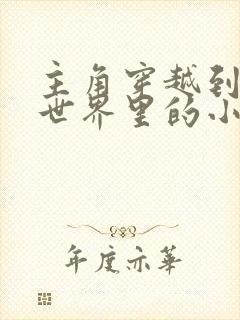 主角穿越到
世界里的小
年度亦华